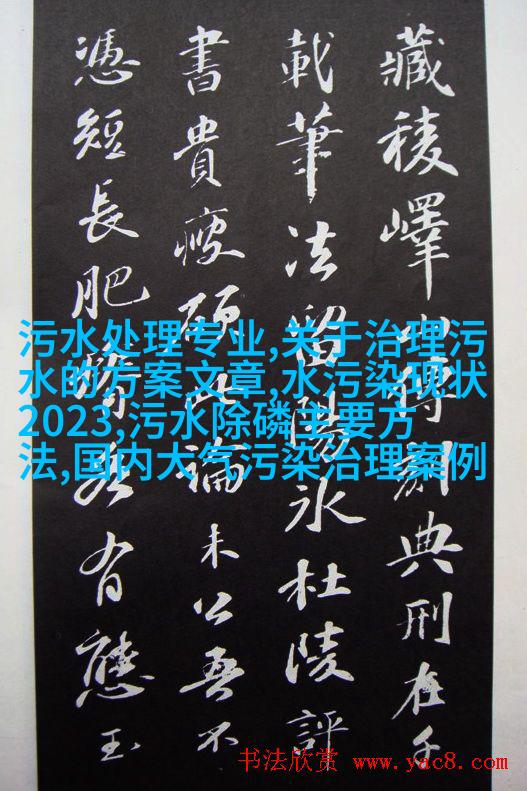 藏稜嶧山傳刻典刑在千
載筆法留陽冰杜陵評
書貴瘦硬此論未公吾不
憑短長肥瘦各有態玉
污水处理专业,关于治理污
水的方案文章,水污染现状
2023,污水除磷主要方
法,国内大气污染治理案例
书法欣赏 www.yac8.com